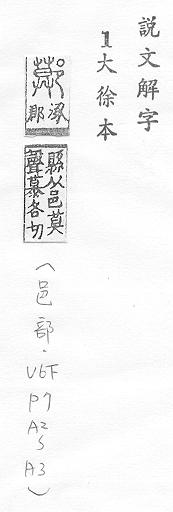 説文解字
1大徐本
鄚 涿郡
縣从邑莫
聲慕各切
(邑部·V6下
P7
A2
S
A3)